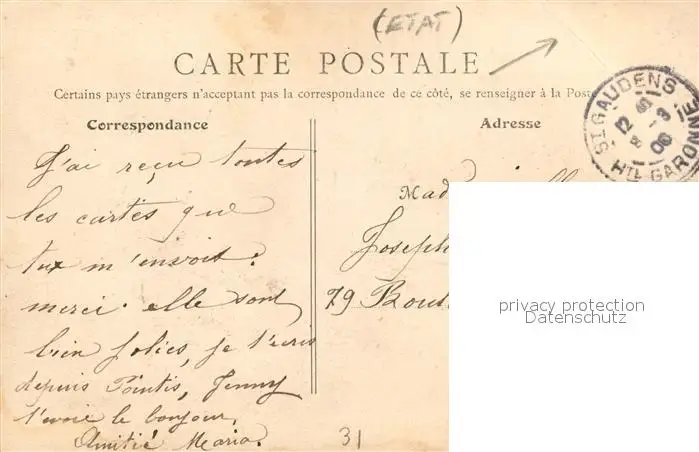 (ETAT)
CARTE POSTALE
Certains pays étrangers n'acceptant pas la correspondance de ce côté, se renseigner à la Post
Correspondance
J'ai reçu toutes
les cartes que
tu m'envoit.
merci. elle sont
bien jolies, je t'écris
depuis Pointis, Jenny
t'envoie le bonjour,
Amitié Maria.
Adresse
Mad
Joseph
79 Bout
ST GAUDENS
12
8 - 9
06
HTE GARONNE
privacy protection
Datenschutz
31